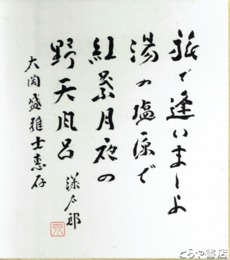 旅で逢いましよ
湯の塩原で
紅葉月夜の
野天風呂
大関盛雄士恵存
とうや書店